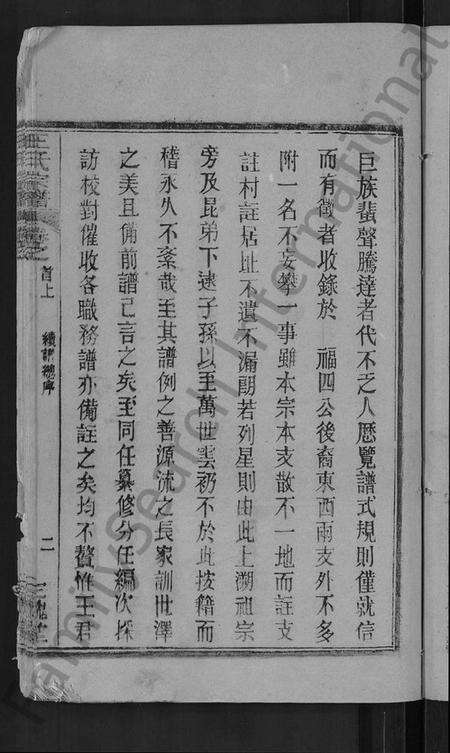 巨族蜚聲騰達者代不乏人歷覽譜式規則僅就信
而有徵者收錄於　福四公後裔東西兩支外不多
附一名不妄攀一事雖本宗本支散不一地而註支
註村註居址不遺不漏朗若列星則由此上溯祖宗
旁及昆弟下逮子孫以至萬世雲礽不於此按籍而
稽永久不紊哉至其譜例之善源流之長家訓世澤
之美且備前譜已言之矣至同任纂修分任編次採
訪校對催收各職務譜亦備註之矣均不贅惟王君
王氏宗譜
首上
續譜總序
二
FamilySearch International